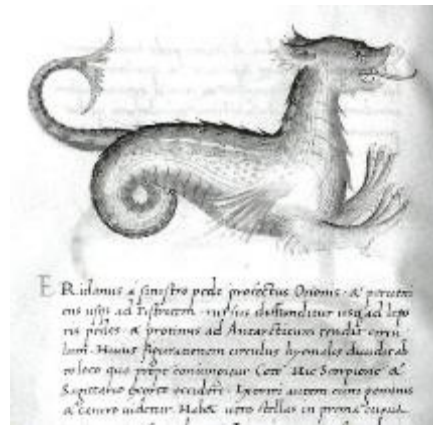 ERidanus a sinistro pede profectus Orionis · & perueni
ens usque ad Pistricem · rursus diffunditur usque ad lepo
ris pedes · & protinus ad Antarcticum tendit circu
lum. Huius figurationem circulus hyemalis diuidit ab
eo loco quo prope coniungitur Ceto. Hic Scorpione &
Sagittario exorto occidere. Exoriri autem cum geminis
& cancro uidetur. Habet uero stellas in prima